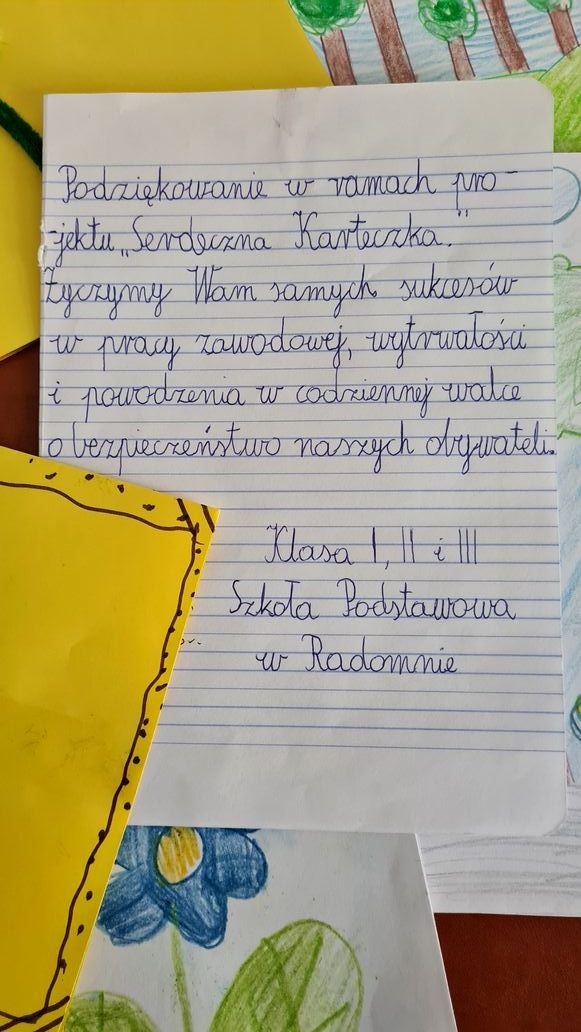 Podziękowanie w ramach pro-
-jektu „Serdeczna Karteczka."
Życzymy Wam samych sukcesów
w pracy zawodowej, wytrwałości
i powodzenia w codziennej walce
o bezpieczeństwo naszych obywateli.
Klasa I, II i III
Szkoła Podstawowa
w Radomnie